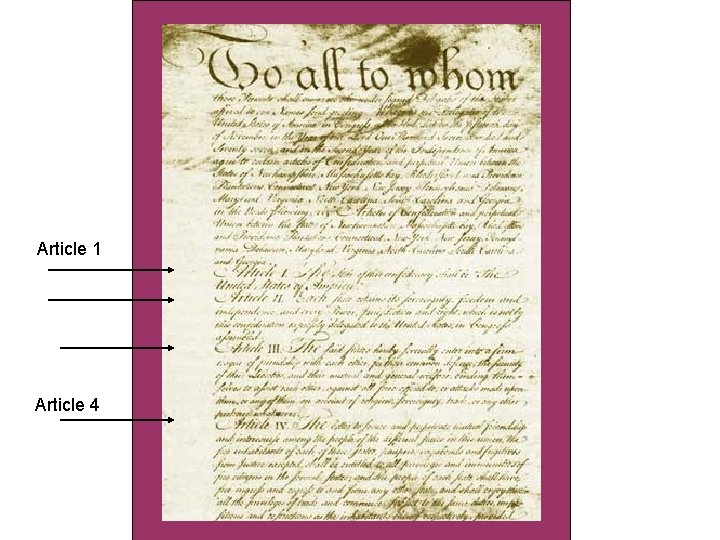 To all to whom
these Presents shall come, we the under signed Delegates of the States
affixed to our Names send greeting. Whereas the Delegates of the
United States of America in Congress assembled did on the fifteenth day
of November in the Year of our Lord One Thousand Seven Hundred and
Seventy seven, and in the Second Year of the Independence of America
agree to certain articles of Confederation and perpetual Union between the
States of Newhampshire, Massachusetts-bay, Rhodeisland and Providence
Plantations, Connecticut, New York, New Jersey, Pennsylvania, Delaware,
Maryland, Virginia, North Carolina, South Carolina and Georgia
in the Words following, viz. Articles of Confederation and perpetual
Union between the States of Newhampshire, Massachusetts-bay, Rhodeisland
and Providence Plantations, Connecticut, New York, New Jersey, Pennsyl-
vania, Delaware, Maryland, Virginia, North Carolina, South Carolina
and Georgia.
Article 1
Article I. The Stile of this confederacy shall be "The
United States of America."
Article II. Each state retains its sovereignty, freedom and
independence, and every Power, Jurisdiction and right, which is not by
this confederation expressly delegated to the United States, in Congress
assembled.
Article III. The said states hereby severally enter into a firm
league of friendship with each other, for their common defence, the security
of their Liberties, and their mutual and general welfare, binding them-
selves to assist each other, against all force offered to, or attacks made upon
them, or any of them, on account of religion, sovereignty, trade, or any other
pretence whatever.
Article 4
Article IV. The better to secure and perpetuate mutual friendship
and intercourse among the people of the different states in this union, the
free inhabitants of each of these states, paupers, vagabonds and fugitives
from Justice excepted, shall be entitled to all privileges and immunities of
free citizens in the several states; and the people of each state shall have
free ingress and regress to and from any other state, and shall enjoy therein
all the privileges of trade and commerce, subject to the same duties, impo-
sitions and restrictions as the inhabitants thereof respectively, provided